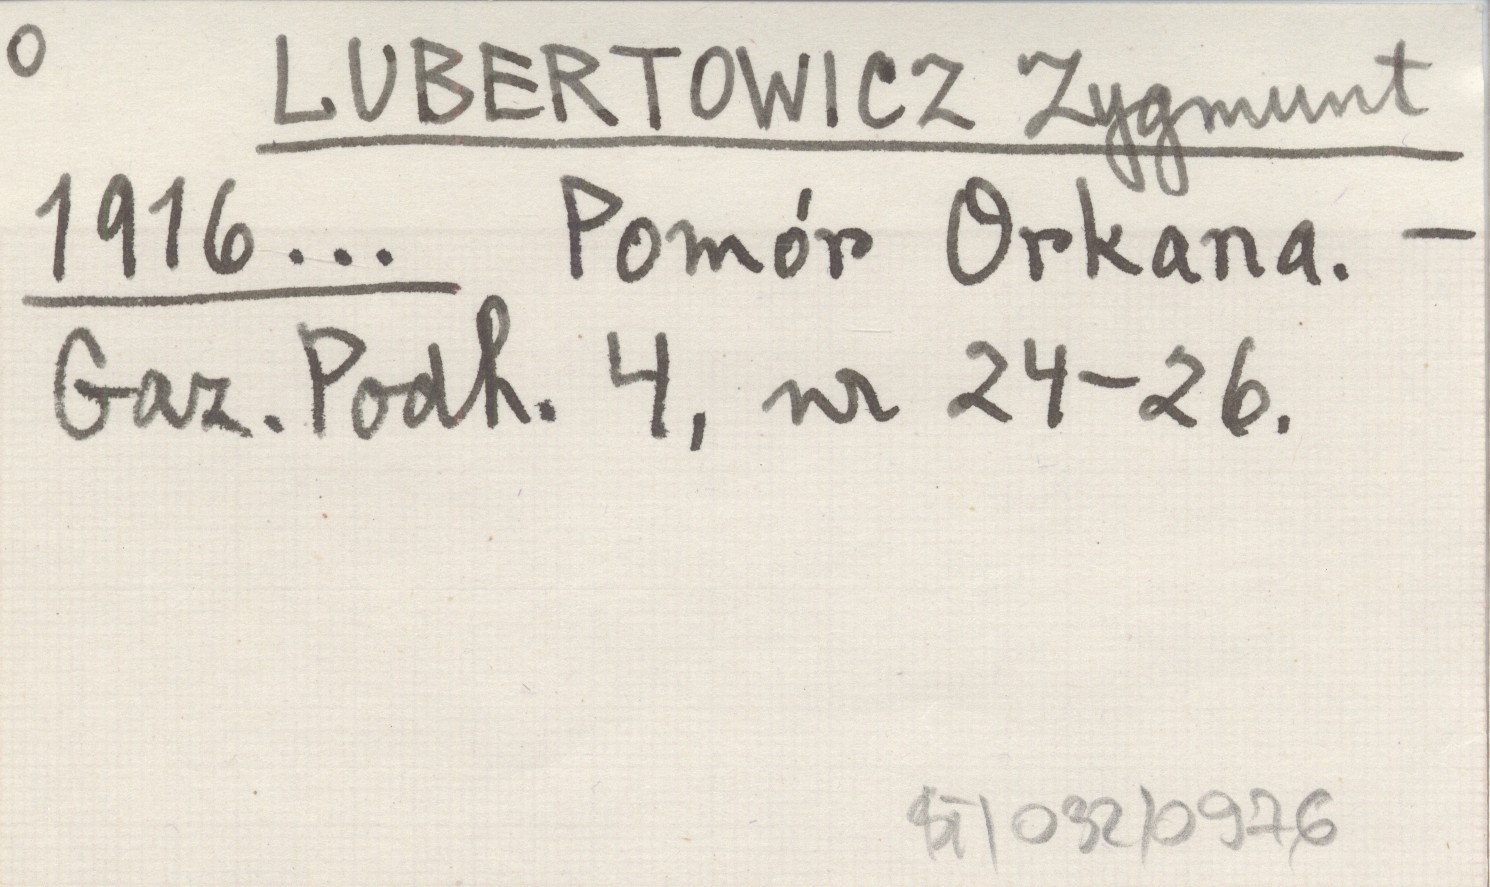 o
LUBERTOWICZ Zygmunt
1916... Pomór Orkana. –
Gaz. Podh. 4, nr 24–26.
032/0976